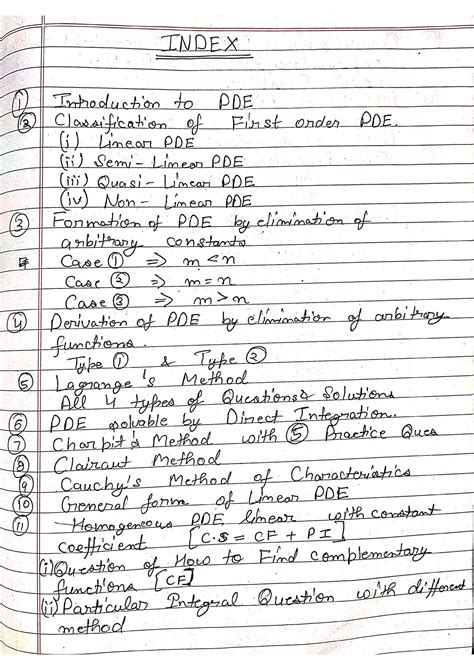 INDEX
① Introduction to PDE
② Classification of First order PDE.
(i) Linear PDE
(ii) Semi-Linear PDE
(iii) Quasi-Linear PDE
(iv) Non-Linear PDE
③ Formation of PDE by elimination of
arbitrary constants
Case ① => m<n
Case ② => m=n
Case ③ => m>n
④ Derivation of PDE by elimination of arbitrary
functions.
Type ① & Type ②
⑤ Lagrange's Method
All 4 types of Questions & Solutions
⑥ PDE solvable by Direct Integration.
⑦ Charpit's Method with ⑤ Practice Ques
⑧ Clairaut Method
⑨ Cauchy's Method of Characteristics
⑩ General form of Linear PDE
⑪ Homogeneous PDE linear with constant
coefficient [C.S = CF + PI]
(i) Question of How to Find complementary
functions [CF]
(ii) Particular Integral Question with different
method